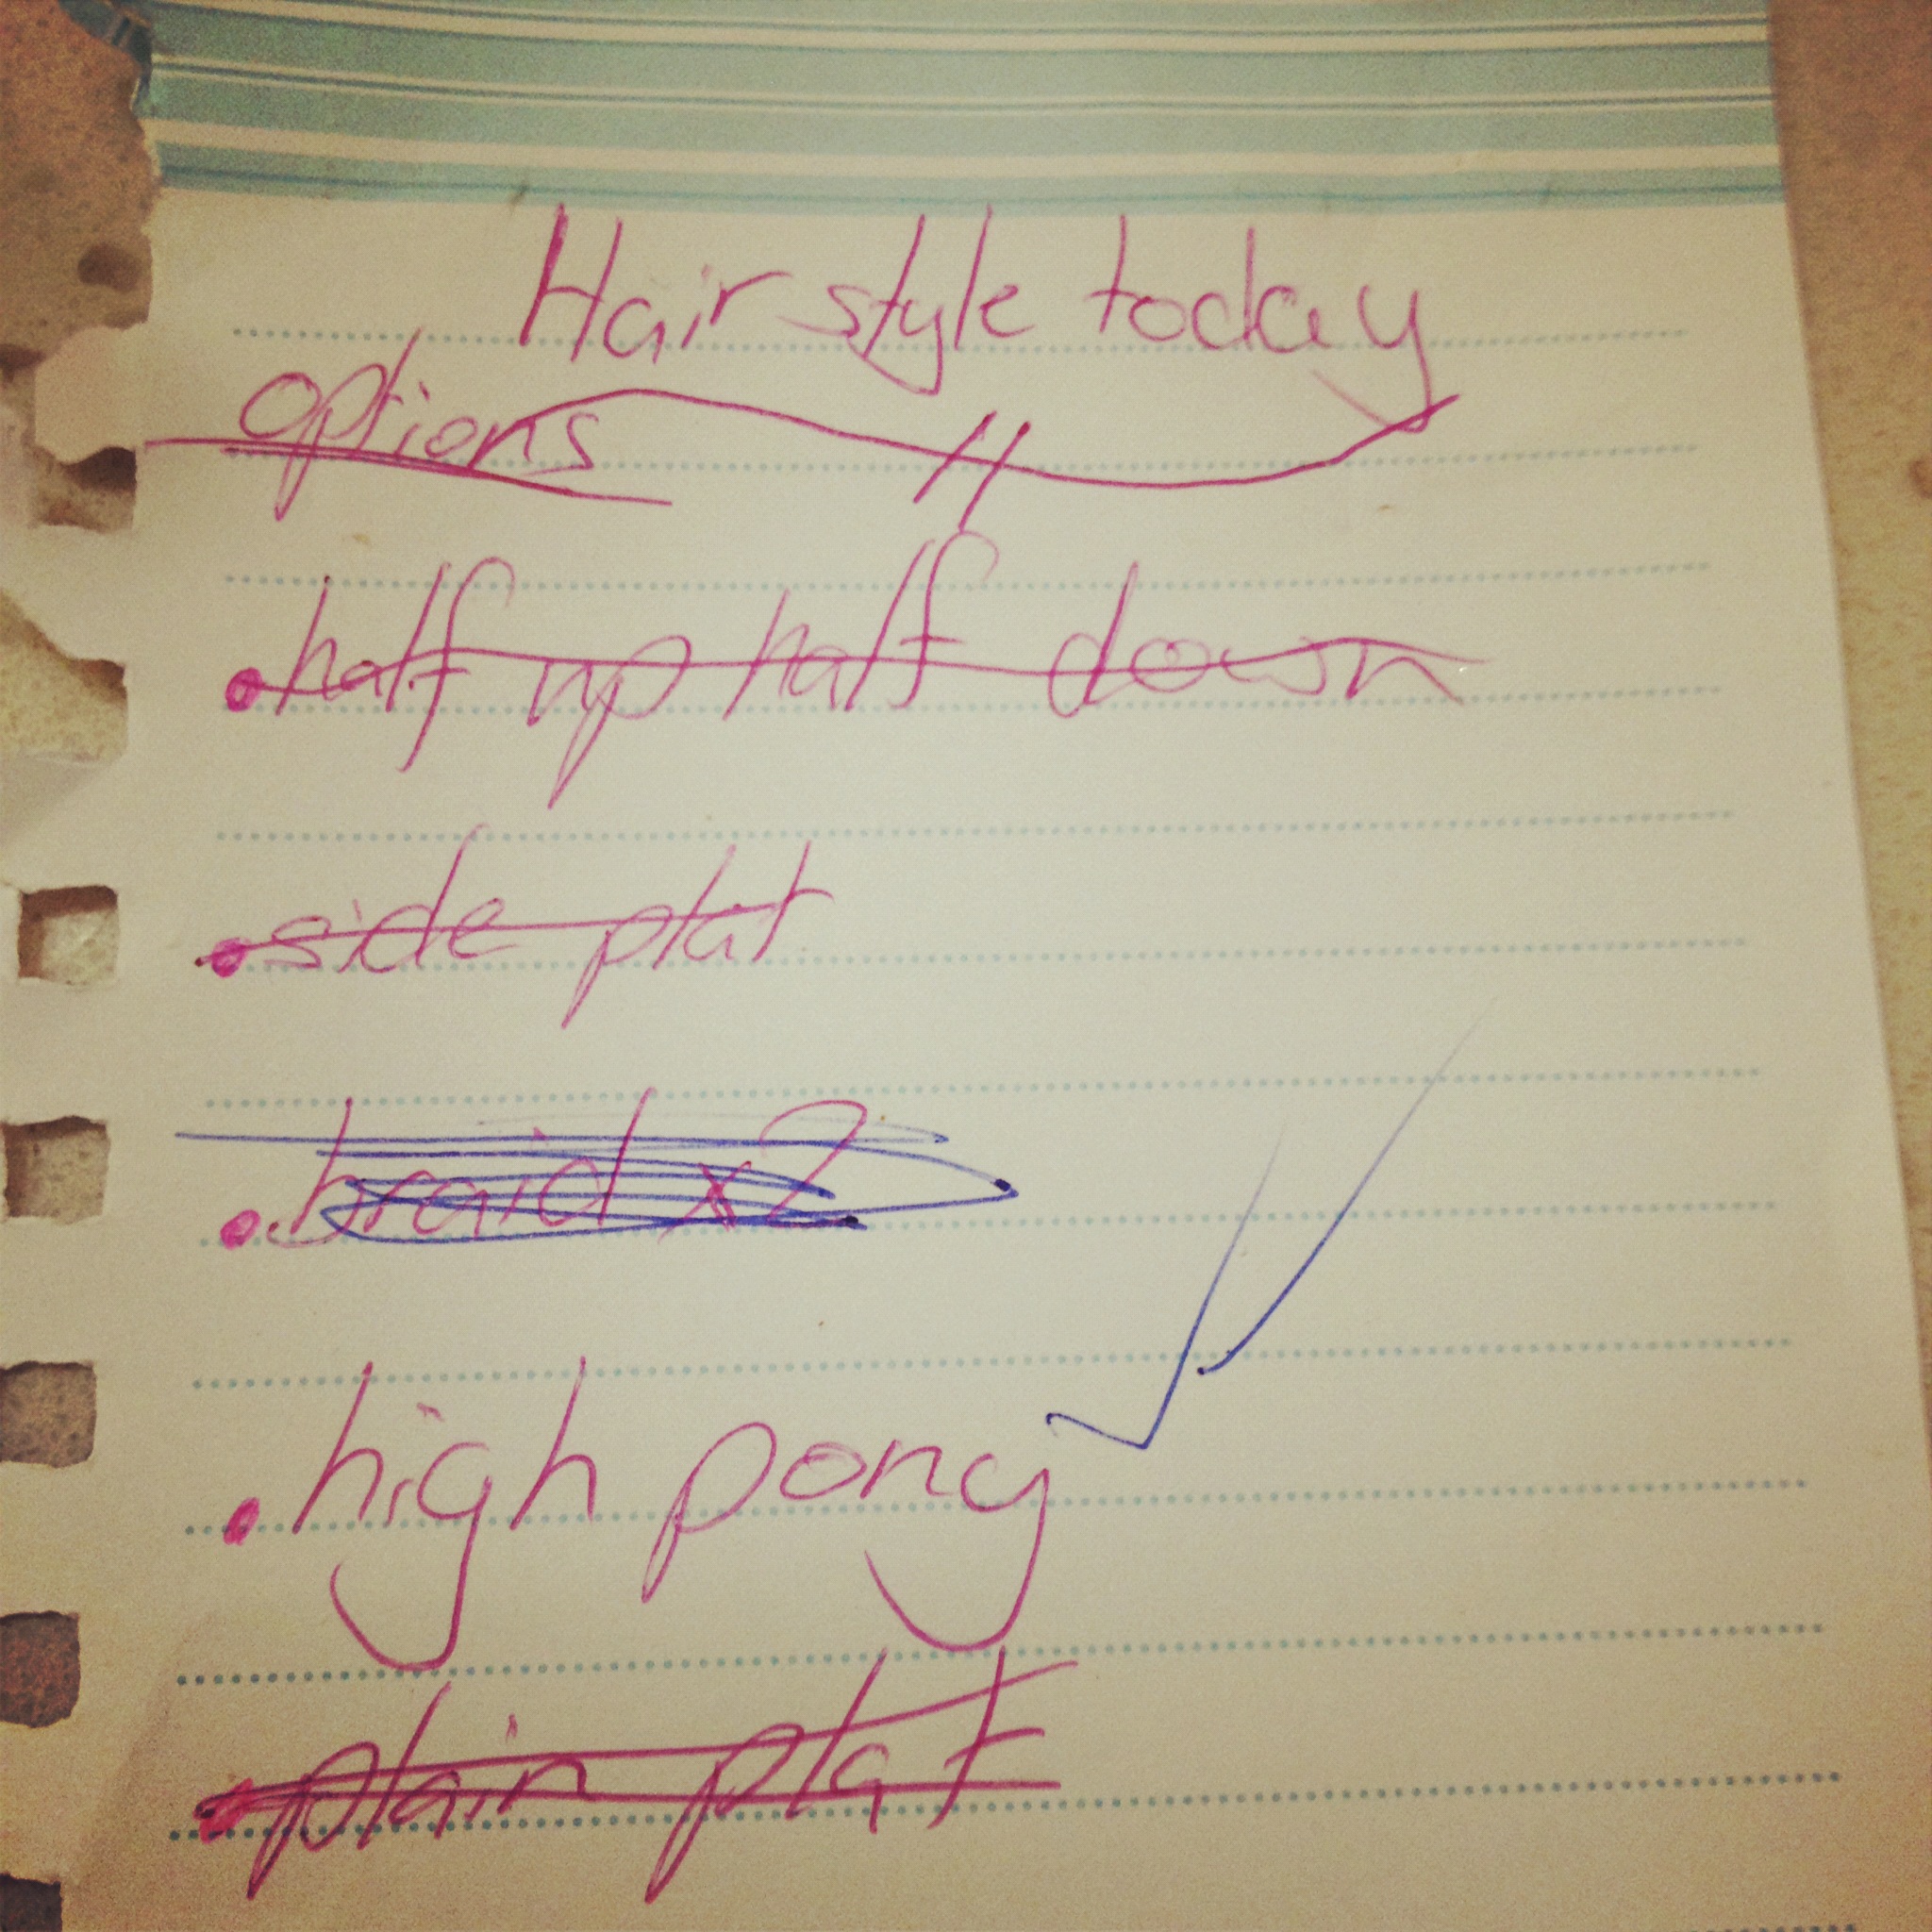 Hair style today
options
• half up half down
• side plat
• braid x2
• high pony ✓
• plain plat